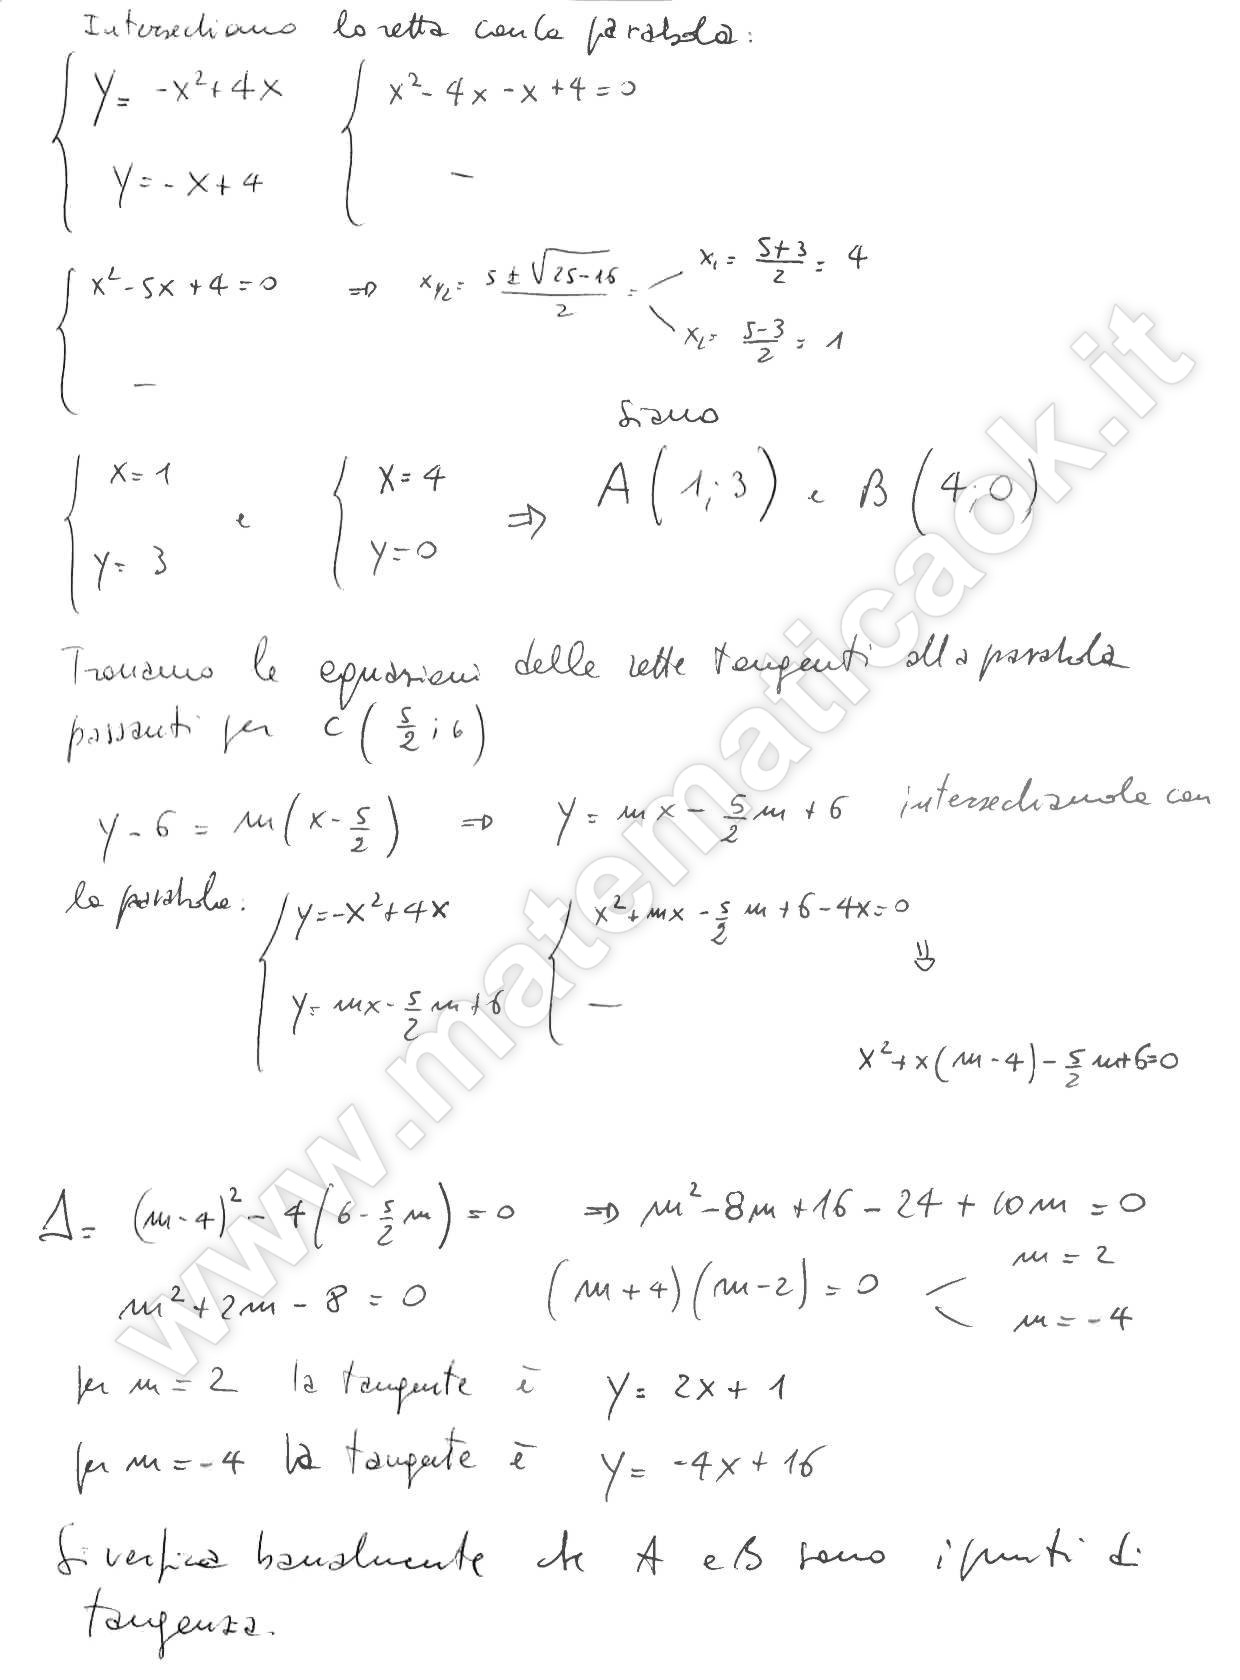 Intersechiamo la retta con la parabola:
{ y = -x² + 4x { x² - 4x - x + 4 = 0
y = -x + 4 —
{ x² - 5x + 4 = 0 ⇒ x₁/₂ = (5 ± √(25-16))/2 = x₁ = (5+3)/2 = 4
— x₂ = (5-3)/2 = 1
siano
{ x = 1 e { x = 4 ⇒ A(1;3) e B(4;0)
y = 3 y = 0
Troviamo le equazioni delle rette tangenti alla parabola
passanti per C(5/2;6)
y - 6 = m(x - 5/2) ⇒ y = mx - 5/2 m + 6 intersechiamola con
la parabola: { y = -x² + 4x { x² + mx - 5/2 m + 6 - 4x = 0
⇓
y = mx - 5/2 m + 6 —
x² + x(m - 4) - 5/2 m + 6 = 0
Δ = (m - 4)² - 4(6 - 5/2 m) = 0 ⇒ m² - 8m + 16 - 24 + 10m = 0
m² + 2m - 8 = 0 (m + 4)(m - 2) = 0 < m = 2
m = -4
per m = 2 la tangente è y = 2x + 1
per m = -4 la tangente è y = -4x + 16
Si verifica banalmente che A e B sono i punti di
tangenza.
www.matematicaok.it